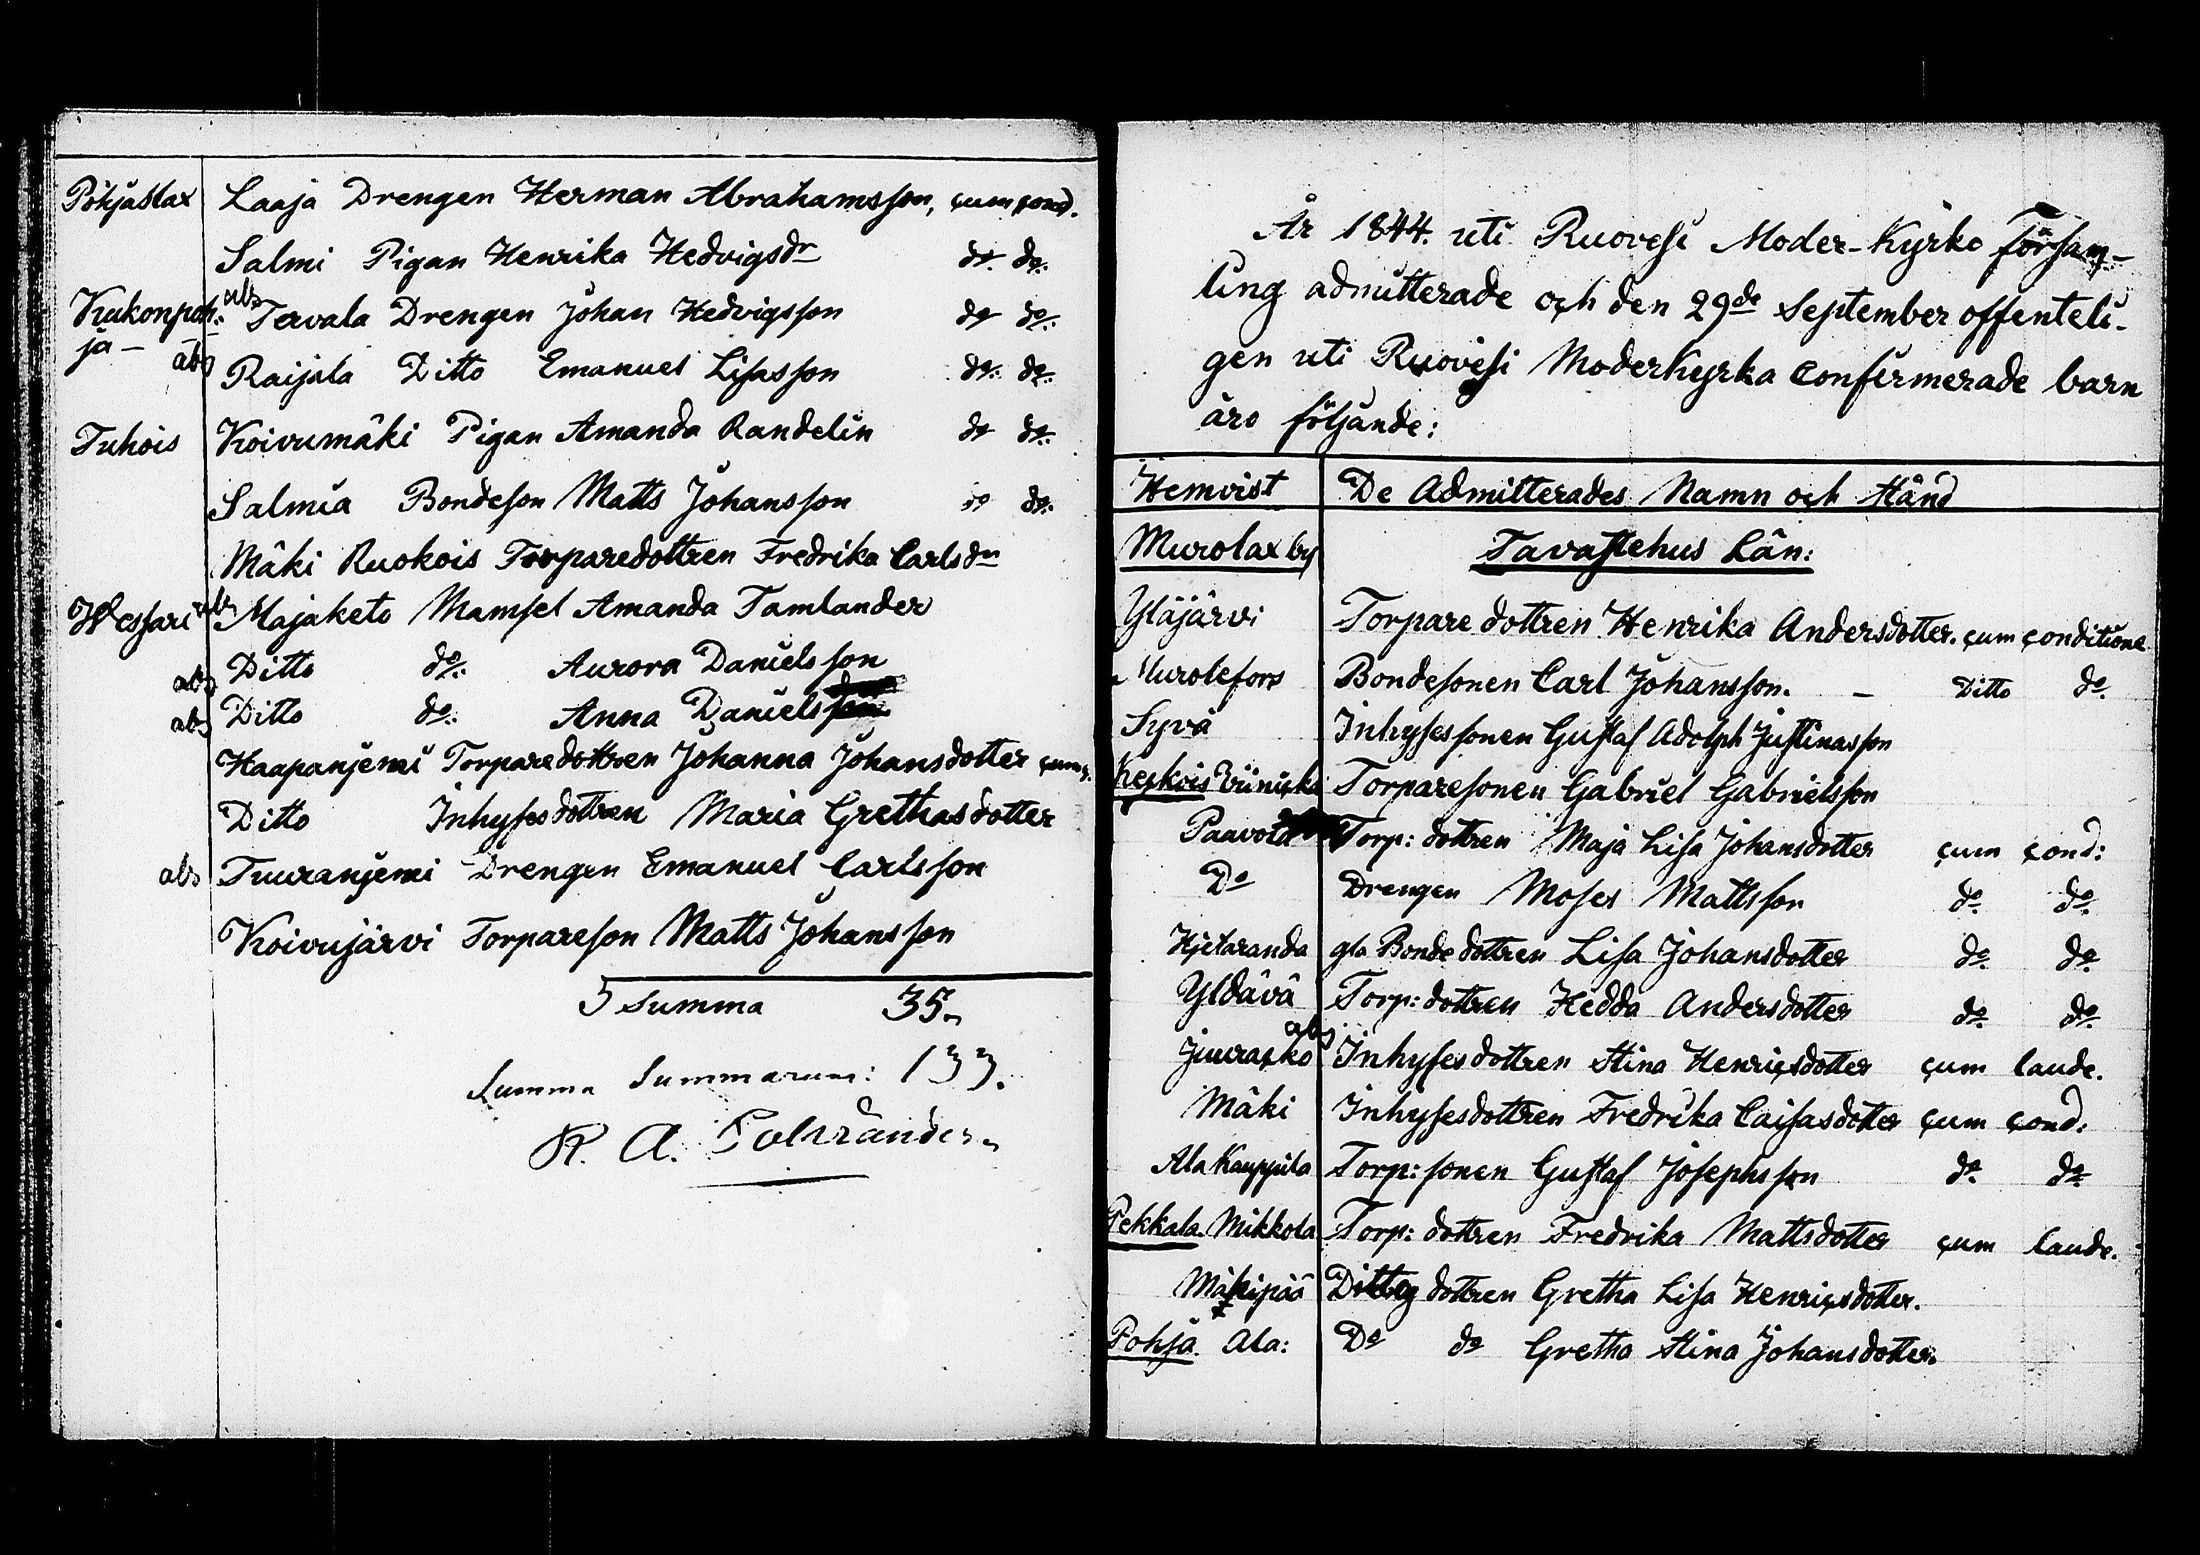 Pohjaslax Laaja Drengen Herman Abrahamsson, cum cond.
Salmi Pigan Henrika Hedvigsdr do. do.
Kukonpoh- abs Tervala Drengen Johan Hedvigsson do do.
ja – abs Raijala Ditto Emanuel Lisasson do. do.
Tuhois Koivumäki Pigan Amanda Randelin do do.
Salmia Bondeson Matts Johansson do do.
Mäki Ruokois Torparedottren Fredrika Carlsdr
Wessari abs Majaketo Mamsel Amanda Tamlander
abs Ditto do. Aurora Danielsson
abs Ditto do. Anna Daniels
Haapanjemi Torparedottren Johanna Johansdotter cum
Ditto Inhysesdottren Maria Grethasdotter
abs Tuuranjemi Drengen Emanuel Carlsson
Koivujärvi Torpareson Matts Johansson
Summa 35.
Summa Summarum: 133.
År 1844. uti Ruovesi Moder-Kyrko Försam-
ling admitterade och den 29de September offenteli-
gen uti Ruovesi Moderkyrka Confirmerade barn
äro följande:
Hemvist De Admitterades Namn och Stånd
Murolax by Tavastehus Län:
Yläjärvi Torparedottren Henrika Andersdotter. cum conditione
Murolefors Bondesonen Carl Johansson. – Ditto do.
Syvä Inhysessonen Gustaf Adolph Justinasson
Keskois Viinicka Torparesonen Gabriel Gabrielsson
Paavola Torp: dottren Maja Lisa Johansdotter cum cond:
Do Drengen Moses Mattsson do. do.
Hjetaranda gla Bondedottren Lisa Johansdotter do. do.
Yldävä Torp: dottren Hedda Andersdotter do. do.
Juuracko abs Inhysesdottren Stina Henricsdotter cum laude.
Mäki Inhysesdottren Fredrika Caisasdotter cum cond:
Ala Kauppila Torp: sonen Gustaf Josephsson do. do.
Pekkala. Mikkola Torp: dottren Fredrika Mattsdotter cum laude.
Mäkipää dottren Gretha Lisa Henricsdotter.
Pohja. Ala: Do do Gretha Stina Johansdotter.